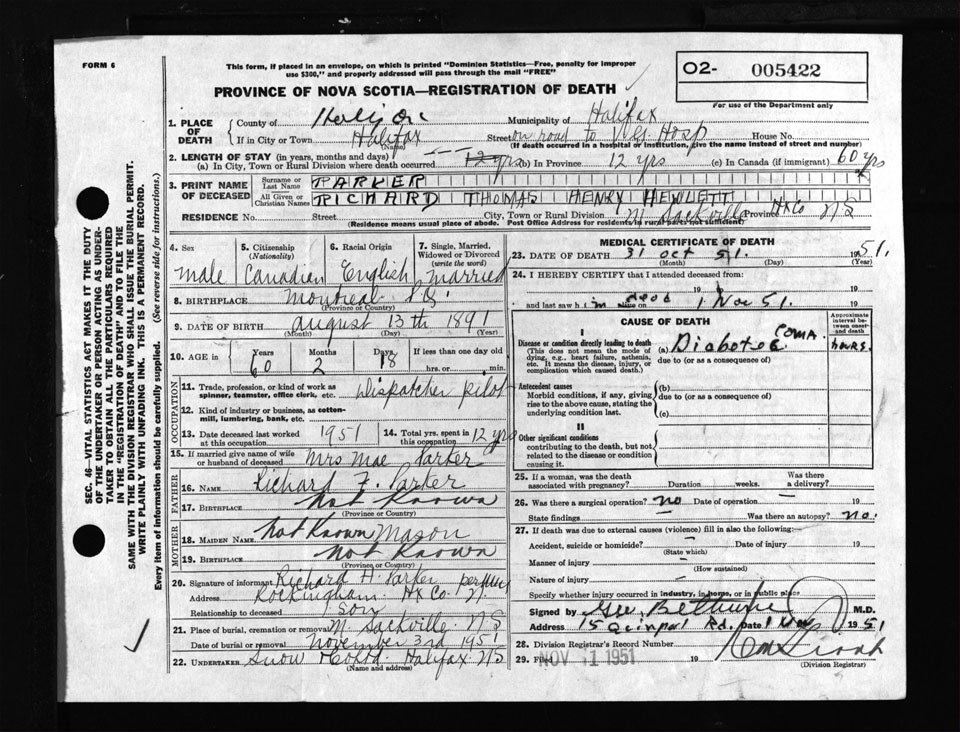 FORM 6
This form, if placed in an envelope, on which is printed "Dominion Statistics—Free, penalty for improper
use $300," and properly addressed will pass through the mail "FREE"
02- 005422
For use of the Department only
PROVINCE OF NOVA SCOTIA—REGISTRATION OF DEATH
1. PLACE OF DEATH
County of Halifax Municipality of Halifax
If in City or Town Halifax Street on road to V.G. Hosp House No.
(Name) (If death occurred in a hospital or institution, give the name instead of street and number)
2. LENGTH OF STAY (in years, months and days)
(a) In City, Town or Rural Division where death occurred 12 yrs (b) In Province 12 yrs (c) In Canada (if immigrant) 60 yrs
3. PRINT NAME OF DECEASED
Surname or Last Name PARKER
All Given or Christian Names RICHARD THOMAS HENRY HEWLETT
RESIDENCE No. Street City, Town or Rural Division M. Sackville Province Hx Co NS
(Residence means usual place of abode. Post Office Address for residents in rural parts not sufficient)
4. Sex male
5. Citizenship (Nationality) Canadian
6. Racial Origin English
7. Single, Married, Widowed or Divorced (write the word) married
8. BIRTHPLACE Montreal P.Q.
(Province or Country)
9. DATE OF BIRTH August 13th 1891
(Month) (Day) (Year)
10. AGE in Years 60 Months 2 Days 18 If less than one day old hrs. or min.
OCCUPATION
11. Trade, profession, or kind of work as spinner, teamster, office clerk, etc. Dispatcher pilot
12. Kind of industry or business, as cotton-mill, lumbering, bank, etc.
13. Date deceased last worked at this occupation 1951 14. Total yrs. spent in this occupation 12 yrs
15. If married give name of wife or husband of deceased Mrs Mae Parker
FATHER
16. NAME Richard F. Parker
17. BIRTHPLACE not Known
(Province or Country)
MOTHER
18. MAIDEN NAME not Known Mason
19. BIRTHPLACE not Known
(Province or Country)
20. Signature of informant Richard H. Parker
Address Rockingham Hx Co. N.
Relationship to deceased son
21. Place of burial, cremation or removal M. Sackville N.S
Date of burial or removal November 3rd 1951
22. UNDERTAKER Snow Halifax NS
(Name and address)
MEDICAL CERTIFICATE OF DEATH
23. DATE OF DEATH 31 Oct 51. 1951.
(Month) (Day) (Year)
24. I HEREBY CERTIFY that I attended deceased from
19
and last saw him dead alive on 1 Nov 51.
CAUSE OF DEATH
Approximate interval between onset and death
I
Disease or condition directly leading to death
(This does not mean the mode of dying, e.g., heart failure, asthenia, etc. It means the disease, injury, or complication which caused death.)
(a) Diabetic COMA hours.
due to (or as consequence of)
Antecedent causes
Morbid conditions, if any, giving rise to the above cause, stating the underlying condition last.
(b)
due to (or as a consequence of)
(c)
II
Other significant conditions
contributing to the death, but not related to the disease or condition causing it.
25. If a woman, was the death associated with pregnancy? Duration weeks. Was there a delivery?
26. Was there a surgical operation? no Date of operation 19
State findings Was there an autopsy? no.
27. If death was due to external causes (violence) fill in also the following:
Accident, suicide or homicide? Date of injury 19
(State which)
Manner of injury
(How sustained)
Nature of injury
Specify whether injury occurred in industry, in home, or in public place
Signed by Bethune M.D.
Address 15 Quinpool Rd. Date 1 Nov 1951
28. Division Registrar's Record Number
29. Filed NOV 1 1951 19
(Division Registrar)
SEC. 46—VITAL STATISTICS ACT MAKES IT THE DUTY
OF THE UNDERTAKER OR PERSON ACTING AS UNDER-
TAKER TO OBTAIN ALL THE PARTICULARS REQUIRED
IN THE "REGISTRATION OF DEATH" AND TO FILE THE
SAME WITH THE DIVISION REGISTRAR WHO SHALL ISSUE THE BURIAL PERMIT.
WRITE PLAINLY WITH UNFADING INK. THIS IS A PERMANENT RECORD.
Every item of information should be carefully supplied. (See reverse side for instructions.)